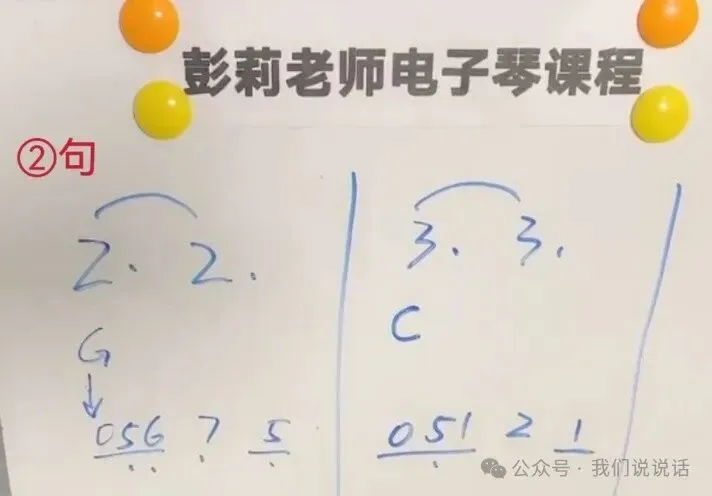 彭莉老师电子琴课程
②句
2. 2. | 3. 3. |
G C
↓
056 7 5 | 051 2 1
公众号·我们说说话